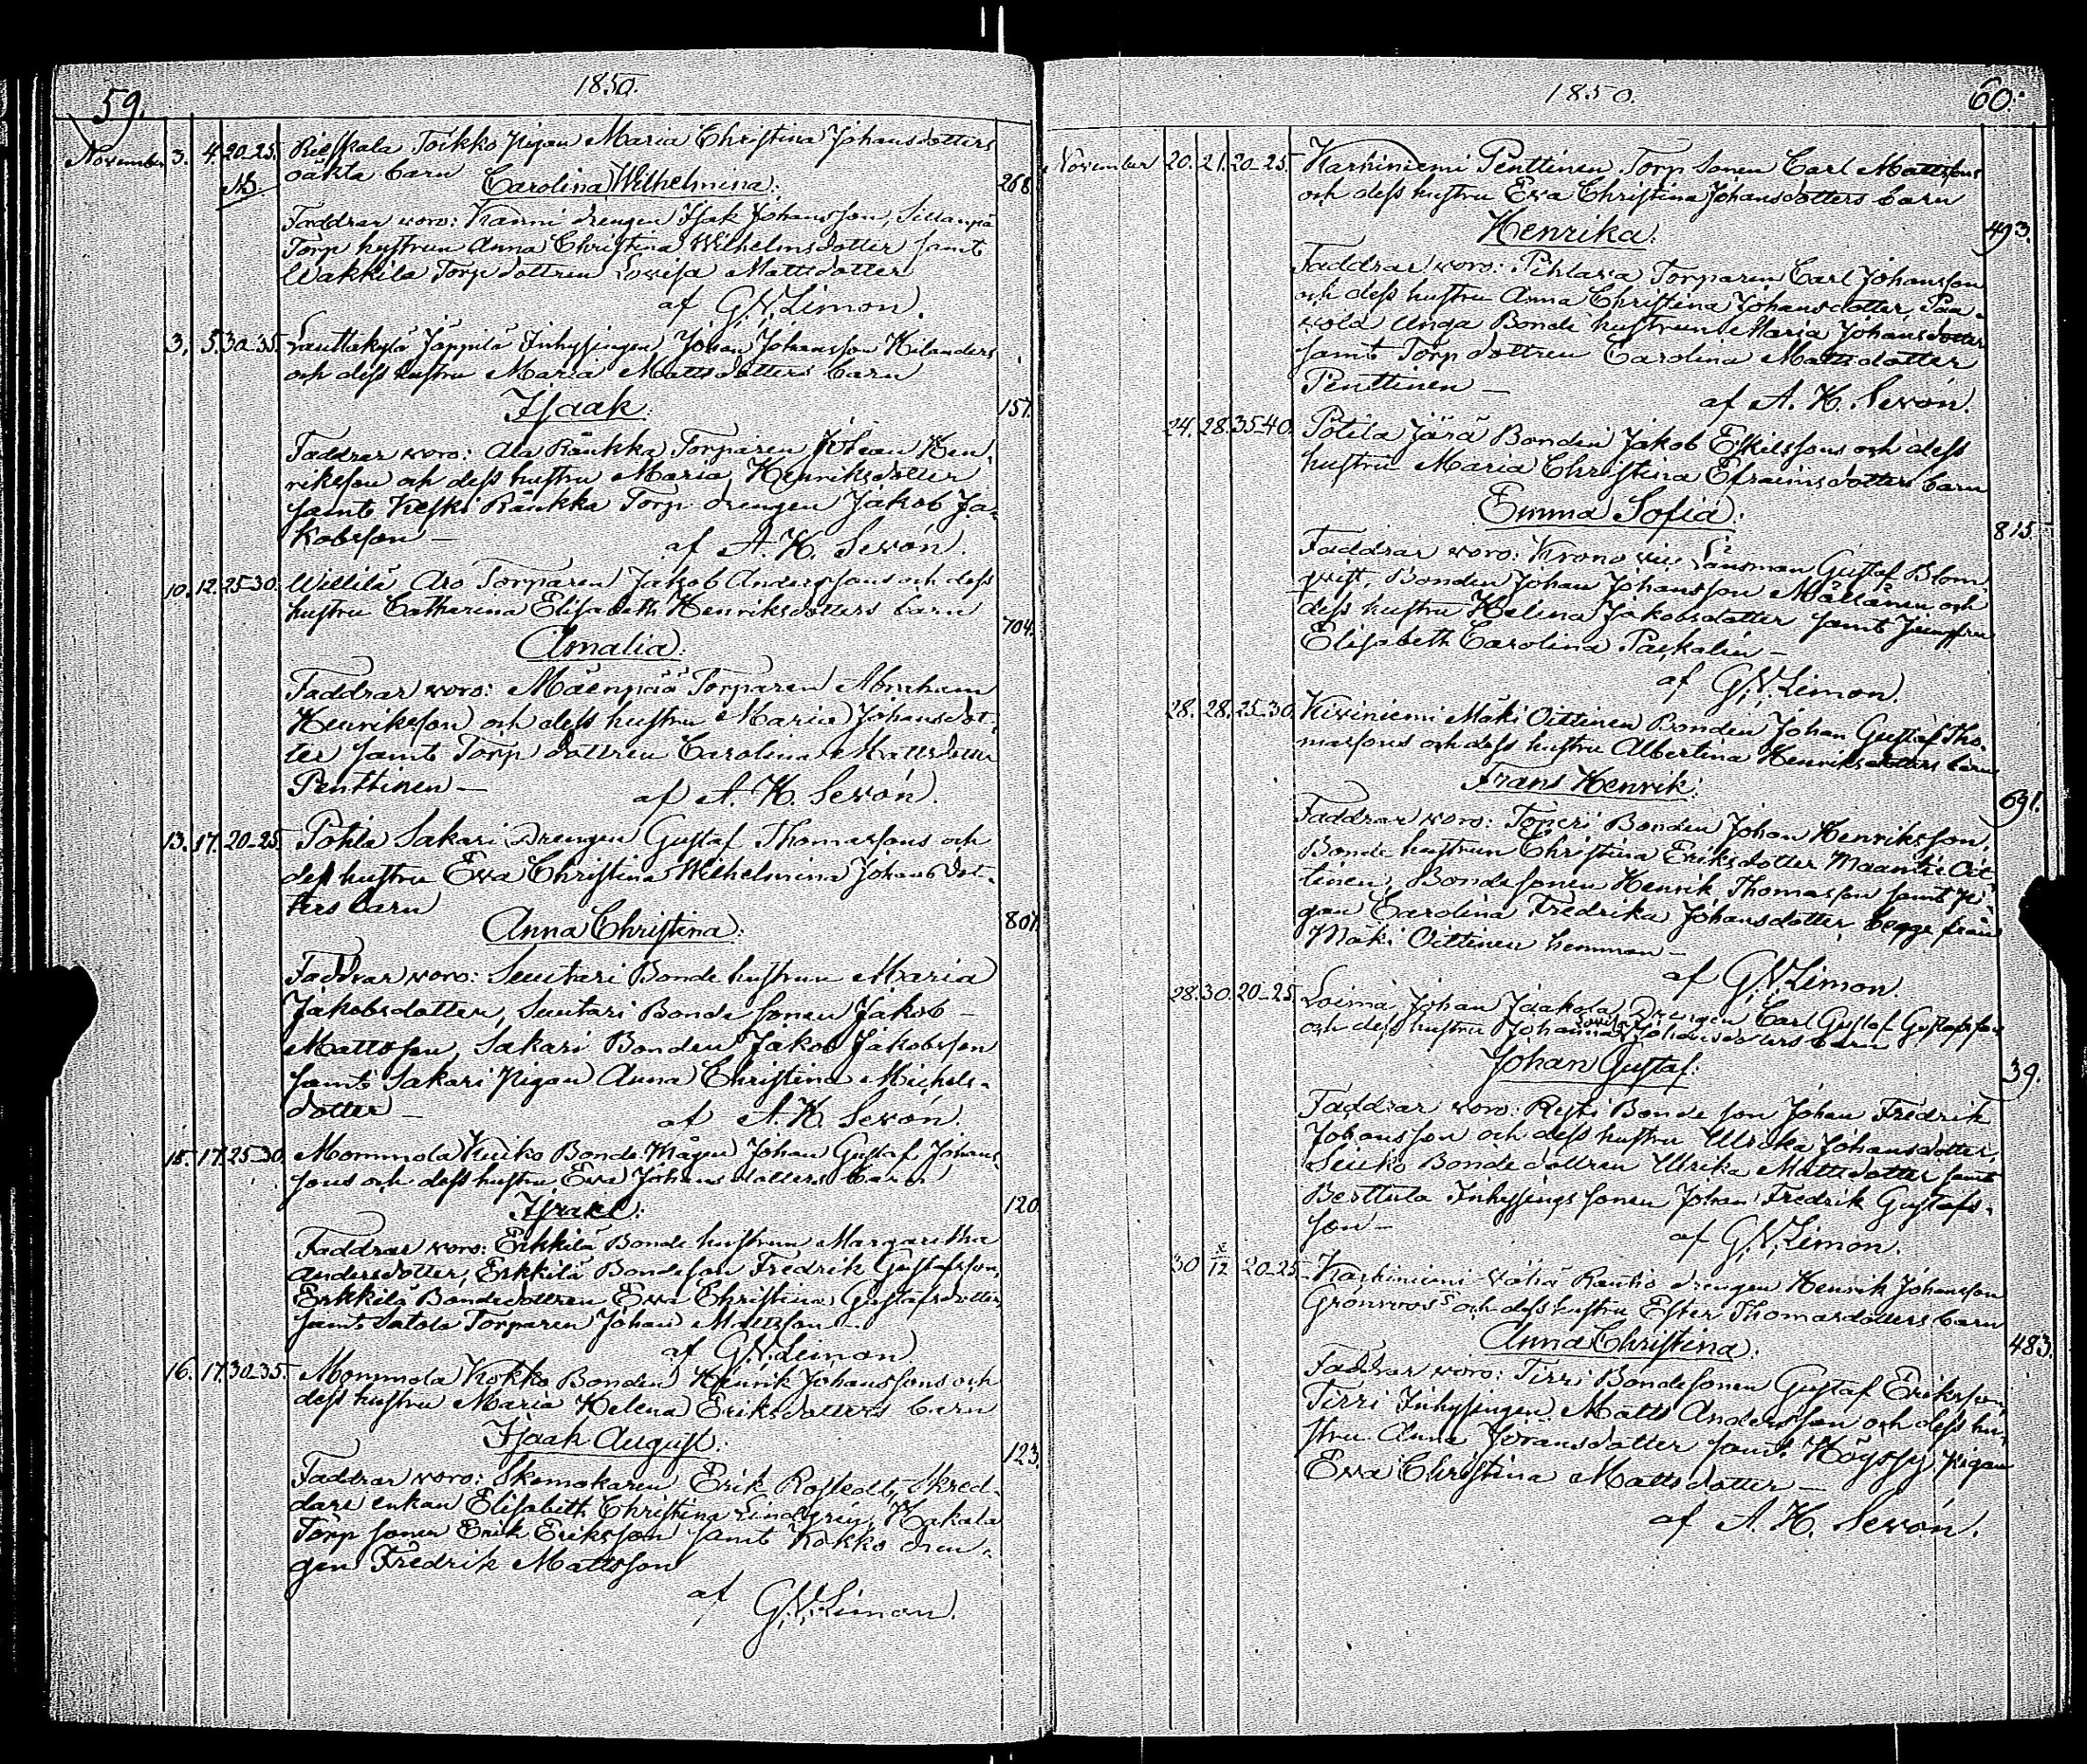 59.
1850.
November 3. 4. 20-25. Rieskala Toikko Pigan Maria Christina Johansdotters
oäkta barn Carolina Wilhelmina. 268
Faddrar woro: Kanni drengen Isak Johansson, Sillanpää
Torp hustrun Anna Christina Wilhelmsdotter samt
Wakkila Torp dottren Lovisa Mattsdotter
af G. W. Limon.
3. 5. 30-35. Lauttakylä Jäppilä Inhysingen Johan Johansson Kilanders
och dess hustru Maria Mattsdotters barn
Isaak. 157.
Faddrar woro: Ala Räukka Torparen Johan Hen-
riksson och dess hustru Maria Henriksdotter
samt Keski Räukka Torp drengen Jakob Ja-
kobsson —
af A. H. Sevón.
10. 12. 25-30. Willilä Aro Torparen Jakob Anderssons och dess
hustru Catharina Elisabeth Henriksdotters barn
Amalia. 704.
Faddrar woro: Mäenpää Torparen Abraham
Henriksson och dess hustru Maria Johansdot-
ter samt Torp dottren Carolina Mattsdotter
Penttinen —
af A. H. Sevón.
13. 17. 20-25. Pohla Sakari Drengen Gustaf Thomassons och
dess hustru Eva Christina Wilhelmina Johansdot-
ters barn
Anna Christina. 801.
Faddrar woro: Suutari Bonde hustrun Maria
Jakobsdotter, Suutari Bonde sonen Jakob
Mattsson, Sakari Bonden Jakob Jakobsson
samt Sakari Pigan Anna Christina Michels-
dotter —
af A. H. Sevón.
15. 17. 25-30. Mommola Kuiko Bonde Mågen Johan Gustaf Johans-
sons och dess hustru Eva Johansdotters barn
Israel. 120.
Faddrar woro: Erkkilä Bonde hustrun Margaretha
Andersdotter, Erkkilä Bondeson Fredrik Gustafsson,
Erkkilä Bondedottren Eva Christina Gustafsdotter,
samt Satola Torparen Johan Mattsson —
af G. W. Limon
16. 17. 30-35. Mommola Kokko Bonden Henrik Johanssons och
dess hustru Maria Helena Eriksdotters barn
Isaak August. 123.
Faddrar woro: Skomakaren Erik Rostedt, Skred-
dare enkan Elisabeth Christina Lindgren, Hakala
Torp sonen Erik Eriksson samt Kokko dren-
gen Fredrik Mattsson
af G. W. Limon.
1850.
60.
November 20. 21. 20-25. Karhiniemi Penttinen Torp Sonen Carl Mattssons
och dess hustru Eva Christina Johansdotters barn
Henrika. 493.
Faddrar woro: Pihlava Torparen Carl Johansson
och dess hustru Anna Christina Johansdotter, Paa-
vola Unga Bonde hustrun Maria Johansdotter
samt Torp dottren Carolina Mattsdotter
Penttinen —
af A. H. Sevón.
24. 28. 35-40. Potila Järä Bonden Jakob Eskilssons och dess
hustru Maria Christina Efraimsdotters barn
Emma Sofia. 815.
Faddrar woro: Krono vice Länsman Gustaf Blom-
qvist, Bonden Johan Johansson Mällänen och
dess hustru Helena Jakobsdotter samt Jungfru
Elisabeth Carolina Paskalin —
af G. W. Limon.
28. 28. 25-30. Kiviniemi Mäki Oittinen Bonden Johan Gustaf Tho-
massons och dess hustru Albertina Henriksdotters barn
Frans Henrik. 691.
Faddrar woro: Toperi Bonden Johan Henriksson,
Bonde hustrun Christina Eriksdotter Maantie Oit-
tinen, Bondesonen Henrik Thomasson samt Pi-
gan Carolina Fredrika Johansdotter begge från
Mäki Oittinen hemman —
af G. W. Limon.
28. 30. 20-25. Loima Johan Jaakola Drengen Carl Gustaf Gustafsson
och dess hustru Johanna Lovisa Johansdotters barn
Johan Gustaf. 39.
Faddrar woro: Risti Bonde son Johan Fredrik
Johansson och dess hustru Ulrika Johansdotter,
Seiko Bonde dottren Ulrika Mattsdotter samt
Berttula Inhysings sonen Johan Fredrik Gustafs-
son —
af G. W. Limon.
30 x/12 20-25. Karhiniemi Vähä Rautio drengen Henrik Johansson
Grönroos's och dess hustru Ester Thomasdotters barn
Anna Christina. 483.
Faddrar woro: Tirri Bondesonen Gustaf Eriksson,
Tirri Inhysingen Matts Andersson och dess hu-
stru Anna Göransdotter samt Pigan
Eva Christina Mattsdotter —
af A. H. Sevón.